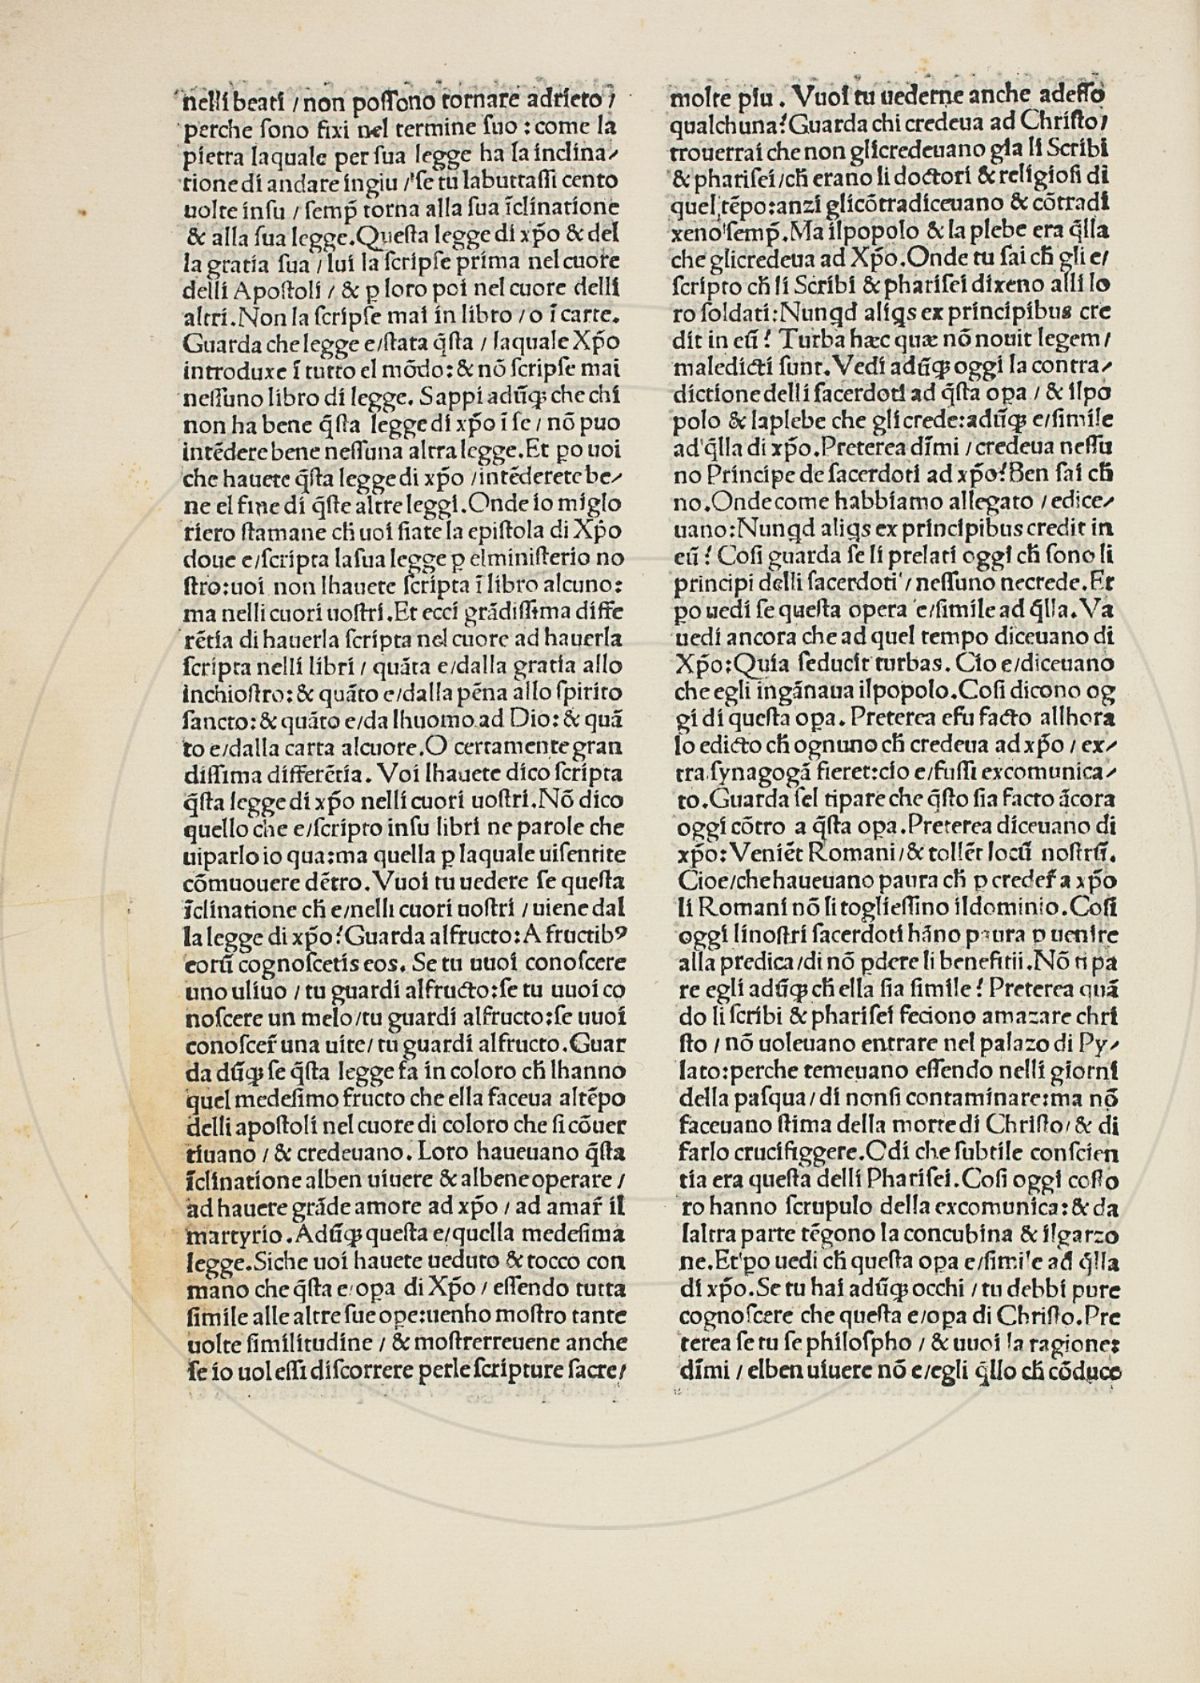 nelli beati / non possono tornare adrieto /
perche sono fixi nel termine suo : come la
pietra laquale per sua legge ha la inclina⸗
tione di andare ingiu / se tu labuttassi cento
uolte insu / semp̄ torna alla sua ĩclinatione
& alla sua legge. Questa legge di xp̄o & del
la gratia sua / lui la scripse prima nel cuore
delli Apostoli / & ꝑ loro poi nel cuore delli
altri. Non la scripse mai in libro / o ĩ carte.
Guarda che legge e/stata q̄sta / laquale Xp̄o
introduxe ĩ tutto el mõdo: & nõ scripse mai
nessuno libro di legge. Sappi adũq; che chi
non ha bene q̄sta legge di xp̄o ĩ se / nõ puo
intẽdere bene nessuna altra legge. Et ꝑo uoi
che hauete q̄sta legge di xp̄o / intẽderete be⸗
ne el fine di q̄ste altre leggi. Onde io miglo
riero stamane ch̄ uoi siate la epistola di Xp̄o
doue e/scripta lasua legge ꝑ elministerio no
stro: uoi non lhauete scripta ĩ libro alcuno:
ma nelli cuori uostri. Et ecci grãdissima diffe
rẽtia di hauerla scripta nel cuore ad hauerla
scripta nelli libri / quãta e/dalla gratia allo
inchiostro: & quãto e/dalla pẽna allo spirito
sancto: & quãto e/da lhuomo ad Dio: & quã
to e/dalla carta alcuore. O certamente gran
dissima differẽtia. Voi lhauete dico scripta
q̄sta legge di xp̄o nelli cuori uostri. Nõ dico
quello che e/scripto insu libri ne parole che
uiparlo io qua: ma quella ꝑ laquale uisentite
cõmuouere dẽtro. Vuoi tu uedere se questa
ĩclinatione ch̄ e/nelli cuori uostri / uiene dal
la legge di xp̄o? Guarda alfructo: A fructibꝰ
eorũ cognoscetis eos. Se tu uuoi conoscere
uno uliuo / tu guardi alfructo: se tu uuoi co
noscere un melo/tu guardi alfructo: se uuoi
conoscer̄ una uite/ tu guardi alfructo. Guar
da dũq; se q̄sta legge fa in coloro ch̄ lhanno
quel medesimo fructo che ella faceua altẽpo
delli apostoli nel cuore di coloro che si cõuer
tiuano / & credeuano. Loro haueuano q̄sta
ĩclinatione alben uiuere & albene operare /
ad hauere grãde amore ad xp̄o / ad amar̄ il
martyrio. Adũq; questa e/quella medesima
legge. Siche uoi hauete ueduto & tocco con
mano che q̄sta e/oꝑa di Xp̄o / essendo tutta
simile alle altre sue oꝑe: uenho mostro tante
uolte similitudine / & mostrerreuene anche
se io uolessi discorrere perle scripture sacre/
molte piu . Vuoi tu uederne anche adesso
qualchuna? Guarda chi credeua ad Christo/
trouerrai che non glicredeuano gia li Scribi
& pharisei /ch̄ erano li doctori & religiosi di
quel tẽpo: anzi glicõtradiceuano & cõtradi
xeno semp̄. Ma ilpopolo & la plebe era q̄lla
che glicredeua ad Xp̄o. Onde tu sai ch̄ gli e/
scripto ch̄ li Scribi & pharisei dixeno alli lo
ro soldati: Nunqd aliqs ex principibus cre
dit in eũ? Turba hæc quæ nõ nouit legem/
maledicti sunt. Vedi adũq; oggi la contra⸗
dictione delli sacerdoti ad q̄sta oꝑa / & ilpo
polo & laplebe che gli crede: adũq; e/simile
ad q̄lla di xp̄o. Preterea dĩmi / credeua nessu
no Principe de sacerdoti ad xp̄o? Ben sai ch̄
no. Onde come habbiamo allegato / edice⸗
uano: Nunqd aliqs ex principibus credit in
eũ? Cosi guarda se li prelati oggi ch̄ sono li
principi delli sacerdoti / nessuno necrede. Et
ꝑo uedi se questa opera e/simile ad q̄lla. Va
uedi ancora che ad quel tempo diceuano di
Xp̄o: Quia seducit turbas. Cio e/diceuano
che egli ingãnaua ilpopolo. Cosi dicono og
gi di questa oꝑa. Preterea efu facto allhora
lo edicto ch̄ ognuno ch̄ credeua ad xp̄o / ex⸗
tra synagogã fieret: cio e/fussi excomunica⸗
to. Guarda sel tipare che q̄sto sia facto ãcora
oggi cõtro a q̄sta oꝑa. Preterea diceuano di
xp̄o: Veniẽt Romani/ & tollẽt locũ nostrũ.
Cioe/che haueuano paura ch̄ ꝑ creder̄ a xp̄o
li Romani nõ li togliessino ildominio. Cosi
oggi linostri sacerdoti hãno paura ꝑ uenire
alla predica/di nõ ꝑdere li benefitii. Nõ ti pa
re egli adũq; ch̄ ella sia simile? Preterea quã
do li scribi & pharisei feciono amazare chri
sto / nõ uoleuano entrare nel palazo di Py⸗
lato: perche temeuano essendo nelli giorni
della pasqua/ di nonsi contaminare: ma nõ
faceuano stima della morte di Christo/ & di
farlo crucifiggere. Odi che subtile conscien
tia era questa delli Pharisei. Cosi oggi costo
ro hanno scrupulo della excomunica: & da
laltra parte tẽgono la concubina & ilgarzo
ne. Et ꝑo uedi ch̄ questa oꝑa e/simile ad q̄lla
di xp̄o. Se tu hai adũq; occhi / tu debbi pure
cognoscere che questa e/oꝑa di Christo. Pre
terea se tu se philosopho / & uuoi la ragione:
dĩmi / elben uiuere nõ e/egli q̄llo ch̄ cõduce